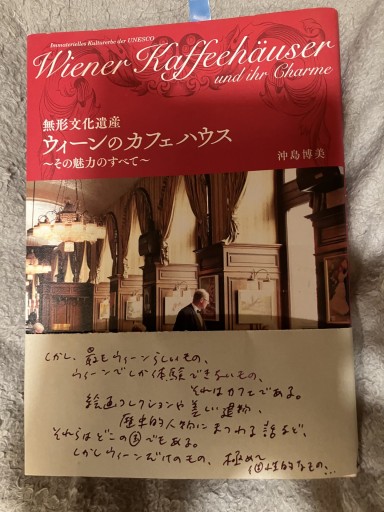 Immaterielles Kulturerbe der UNESCO
Wiener Kaffeehäuser
und ihr Charme
無形文化遺産
ウィーンのカフェハウス
〜その魅力のすべて〜
沖島博美
しかし、最もウィーンらしいもの、
ウィーンでしか体験できないもの、
それはカフェである。
絵画コレクションや美しい建物、
歴史的人物にまつわる話など、
それらはどこの国でもある。
しかしウィーンだけのもの、極めて
個性的なもの、…